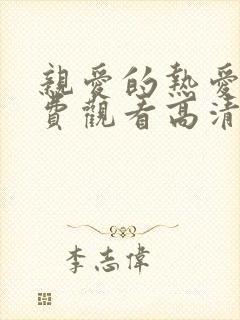 親愛的熱愛
費觀看高清
李志偉